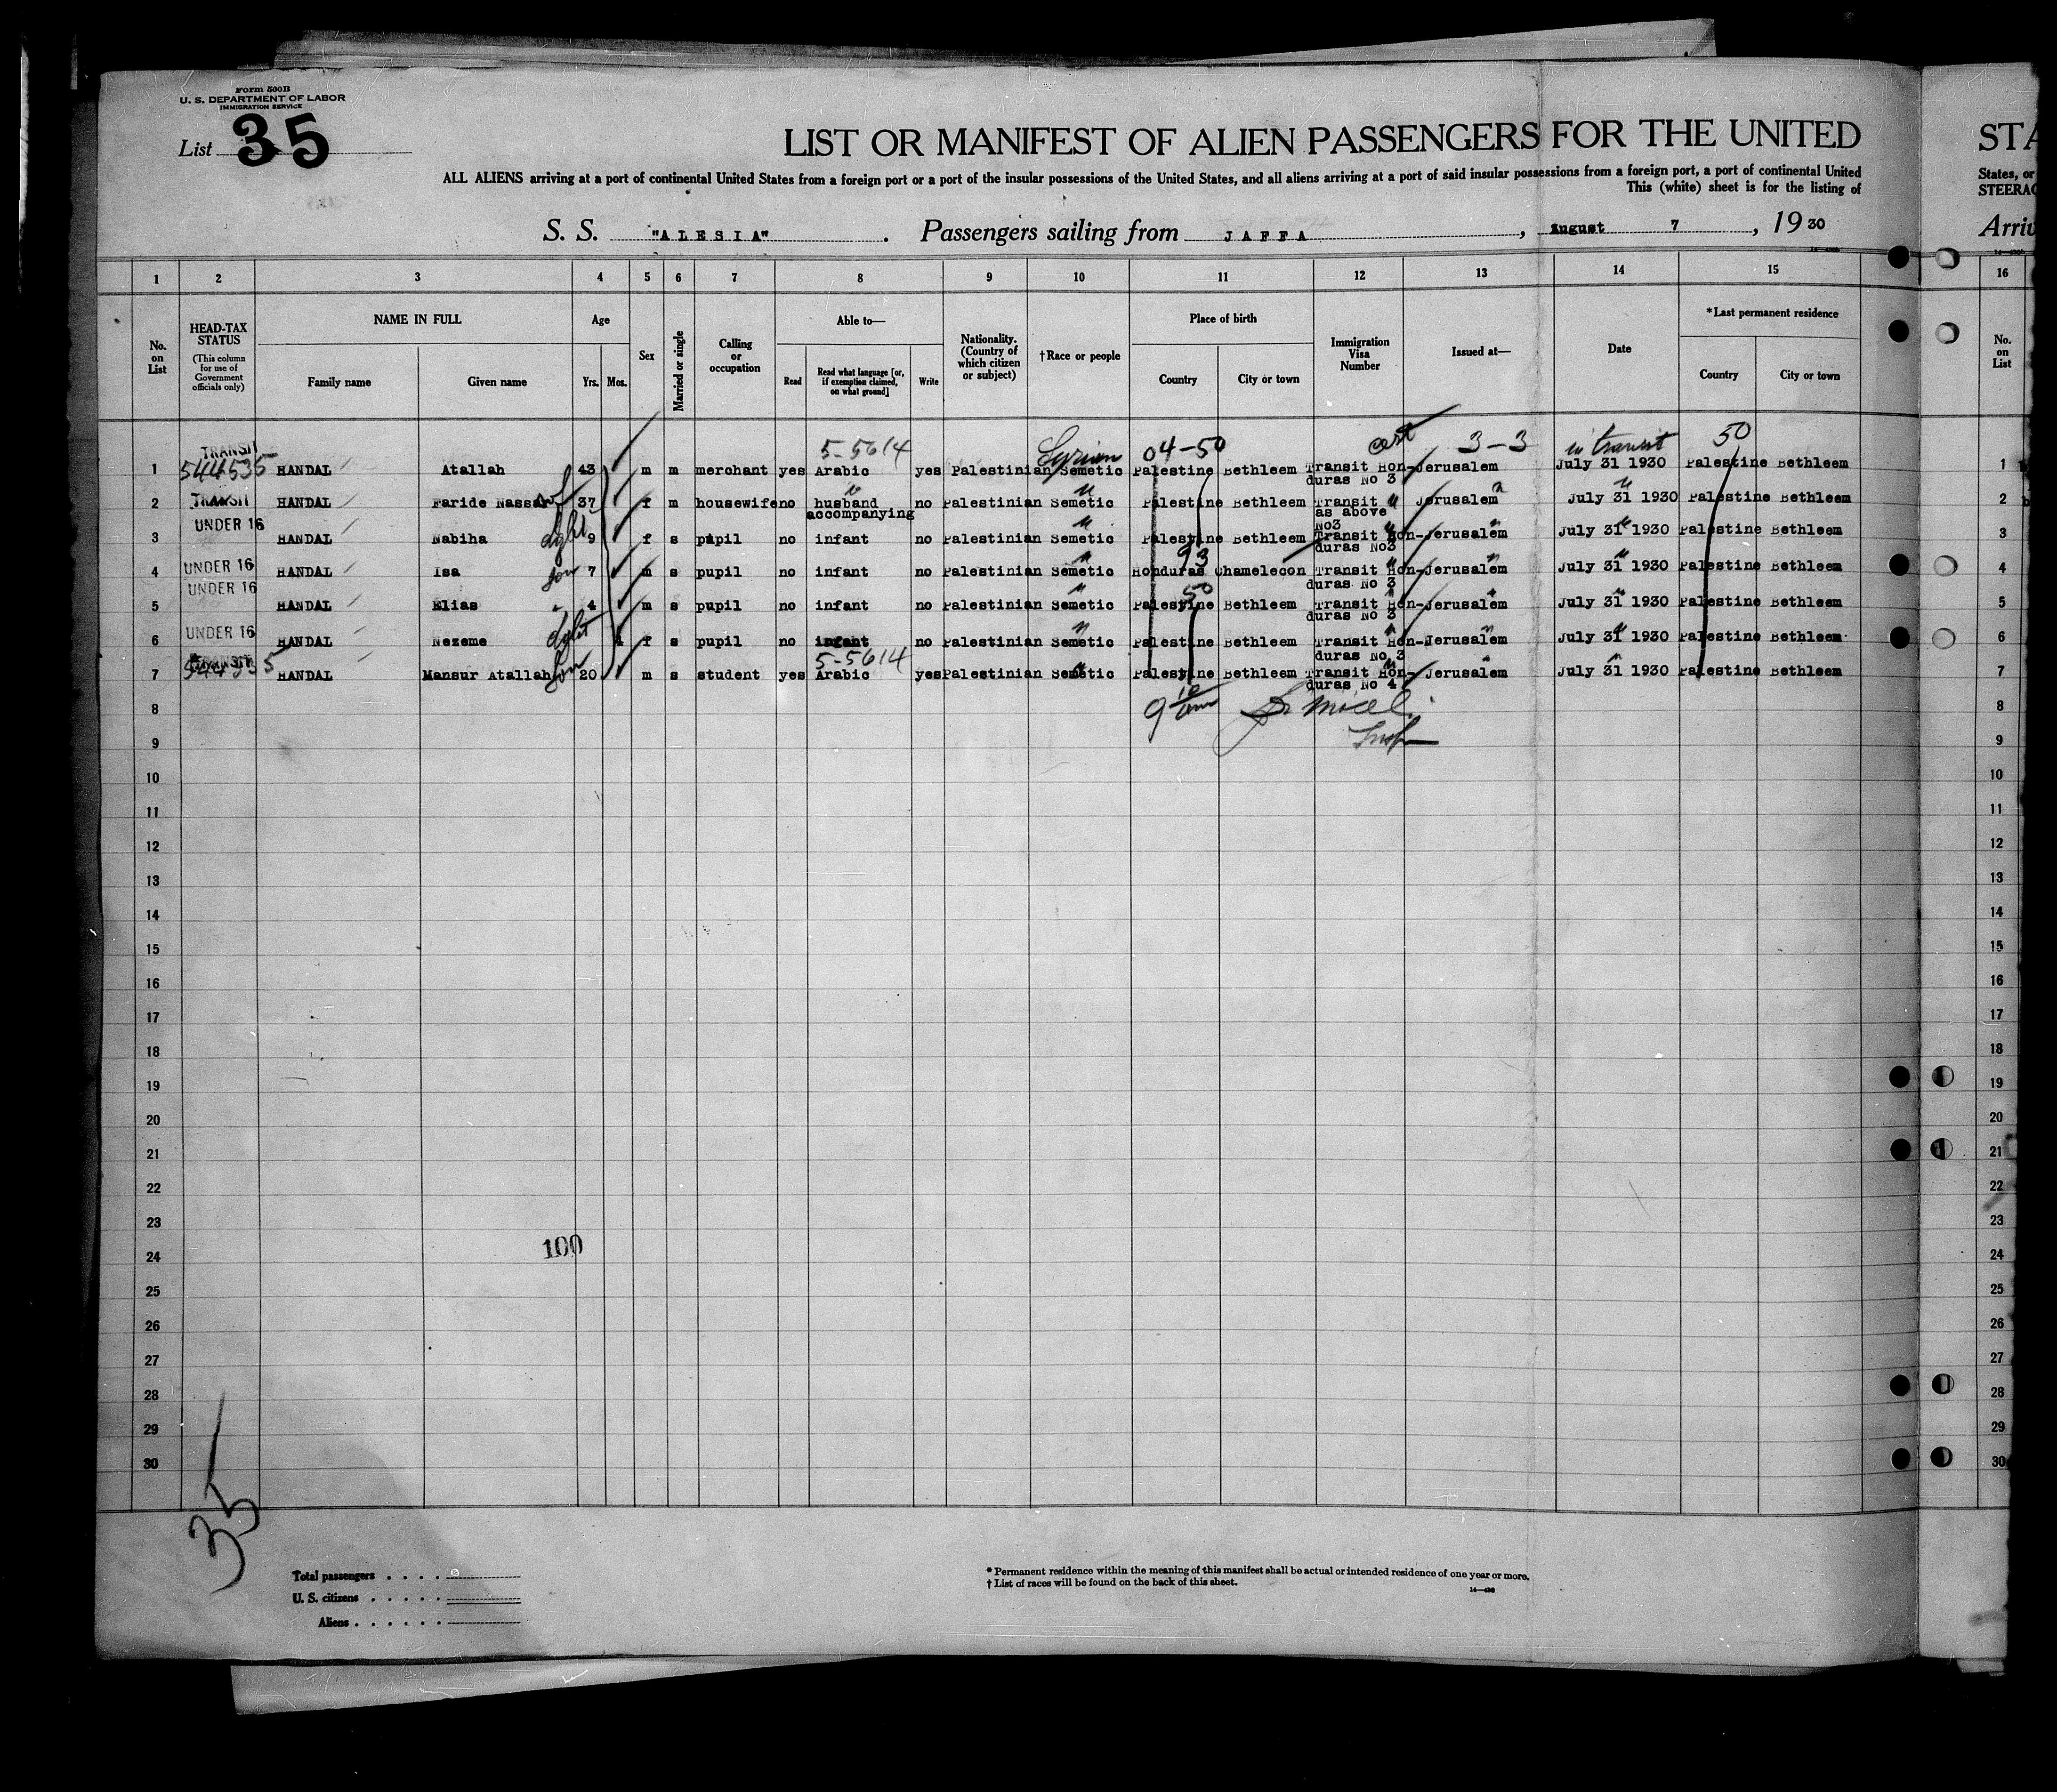 Form 500B
U. S. DEPARTMENT OF LABOR
IMMIGRATION SERVICE
List 35
LIST OR MANIFEST OF ALIEN PASSENGERS FOR THE UNITED
STA
ALL ALIENS arriving at a port of continental United States from a foreign port or a port of the insular possessions of the United States, and all aliens arriving at a port of said insular possessions from a foreign port, a port of continental United
States, or
This (white) sheet is for the listing of
STEERAG
S. S. "ALESIA". Passengers sailing from JAFFA, August 7, 19 30
Arriv
1 2 3 4 5 6 7 8 9 10 11 12 13 14 15 16
No. on List
HEAD-TAX STATUS
(This column for use of Government officials only)
NAME IN FULL
Family name
Given name
Age
Yrs. Mos.
Sex
Married or single
Calling or occupation
Able to—
Read
Read what language [or, if exemption claimed, on what ground]
Write
Nationality. (Country of which citizen or subject)
†Race or people
Place of birth
Country
City or town
Immigration Visa Number
Issued at—
Date
*Last permanent residence
Country
City or town
No. on List
TRANSIT 5-5614 Syrian 04-50 cert 3-3 in transit 50
1 544535 HANDAL Atallah 43 m m merchant yes Arabic yes Palestinian Semetic Palestine Bethleem Transit Hon- Jerusalem July 31 1930 Palestine Bethleem 1
duras No 3
2 TRANSIT HANDAL Faride Nassar wf 37 f m housewife no husband no Palestinian Semetic Palestine Bethleem Transit Jerusalem July 31 1930 Palestine Bethleem 2
accompanying as above
UNDER 16 No3
3 HANDAL Nabiha dght 9 f s pupil no infant no Palestinian Semetic Palestine Bethleem Transit Hon- Jerusalem July 31 1930 Palestine Bethleem 3
duras No3
93
4 UNDER 16 HANDAL Isa son 7 m s pupil no infant no Palestinian Semetic Honduras Chamelecon Transit Hon- Jerusalem July 31 1930 Palestine Bethleem 4
duras No 3
UNDER 16 50
5 HANDAL Elias " 4 m s pupil no infant no Palestinian Semetic Palestine Bethleem Transit Hon- Jerusalem July 31 1930 Palestine Bethleem 5
duras No 3
6 UNDER 16 HANDAL Nezeme dght f s pupil no infant no Palestinian Semetic Palestine Bethleem Transit Hon- Jerusalem July 31 1930 Palestine Bethleem 6
duras No 3
TRANSIT 5-5614
7 544535 HANDAL Mansur Atallah son 20 m s student yes Arabic yes Palestinian Semetic Palestine Bethleem Transit Hon- Jerusalem July 31 1930 Palestine Bethleem 7
duras No 4
8 8
9 9
10 10
11 11
12 12
13 13
14 14
15 15
16 16
17 17
18 18
19 19
20 20
21 21
22 22
23 23
24 100 24
25 25
26 26
27 27
28 28
29 29
30 30
35
Total passengers
U. S. citizens
Aliens
* Permanent residence within the meaning of this manifest shall be actual or intended residence of one year or more.
† List of races will be found on the back of this sheet.